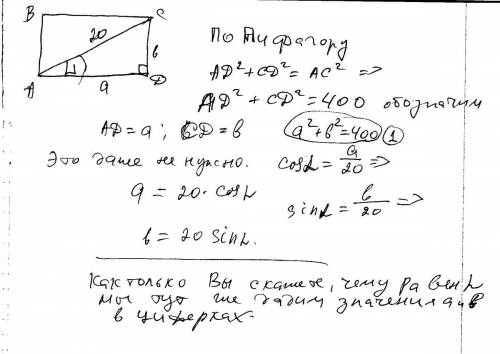 B C
20
По Пифагору
в
AD²+CD²=AC² =>
A a D
AD²+CD²=400 обозначим
AD=a; CD=в a²+в²=400 ①
Это даже не нужно. cosL=a/20 =>
a=20·cosL
sinL=в/20 =>
в=20 sinL.
Как только Вы скажете, чему равен L
мы тут же дадим значения a и в
в циферках.